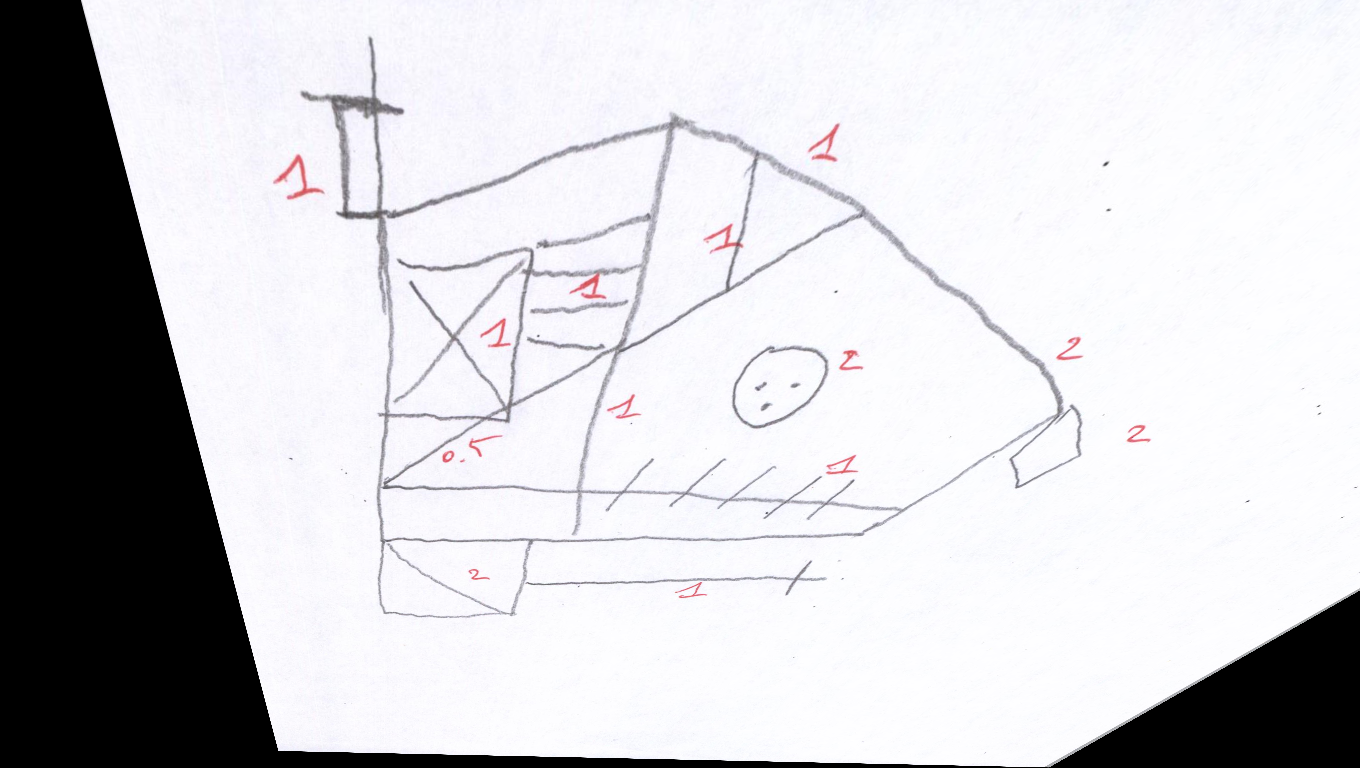 1
1
1
1
1
2
2
1
2
0.5
1
2
1
1